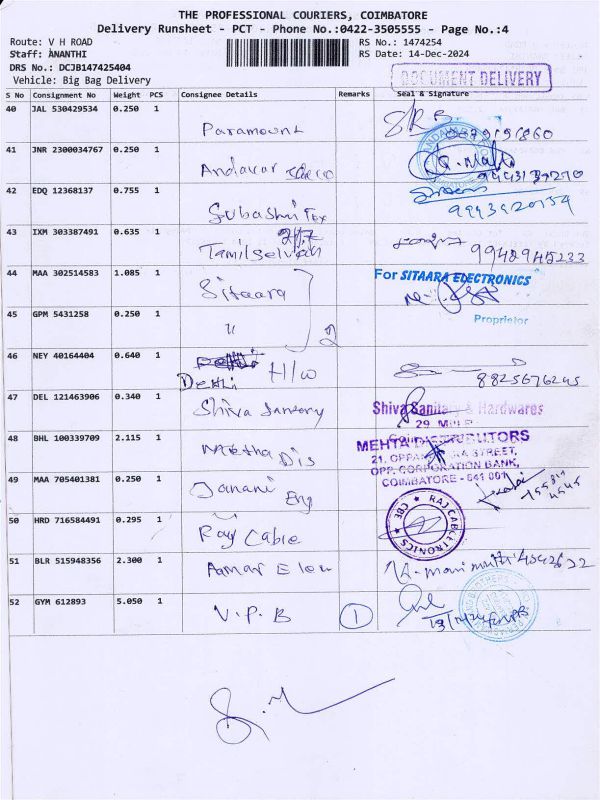 THE PROFESSIONAL COURIERS, COIMBATORE
Delivery Runsheet - PCT - Phone No.:0422-3505555 - Page No.:4
Route: V H ROAD
RS No.: 1474254
Staff: ANANTHI
RS Date: 14-Dec-2024
DRS No.: DCJB147425404
Vehicle: Big Bag Delivery
DOCUMENT DELIVERY
S No Consignment No Weight PCS Consignee Details Remarks Seal & Signature
40 JAL 530429534 0.250 1
Paramount
41 JNR 2300034767 0.250 1
Andavar
42 EDQ 12368137 0.755 1
Subashri Tex
9943920154
43 IXM 303387491 0.635 1
Tamilselvan
9942945233
44 MAA 302514583 1.085 1
Sitaara
For SITAARA ELECTRONICS
45 GPM 5431258 0.250 1
" 2
Proprietor
46 NEY 40164404 0.640 1
Delhi H/w
8825676245
47 DEL 121463906 0.340 1
Shiva Sanitary
Shiva Sanitary & Hardwares
48 BHL 100339709 2.115 1
Mehta Dis
MEHTA DISTRIBUTORS
STREET,
OPP. CORPORATION BANK,
COIMBATORE - 641 001
49 MAA 705401381 0.250 1
Janani Eng
50 HRD 716584491 0.295 1
Raj Cable
RAJ CABLETRONICS ★ CBE ★
51 BLR 515948356 2.300 1
Aamar Elec
52 GYM 612893 5.050 1
V.P.B 1